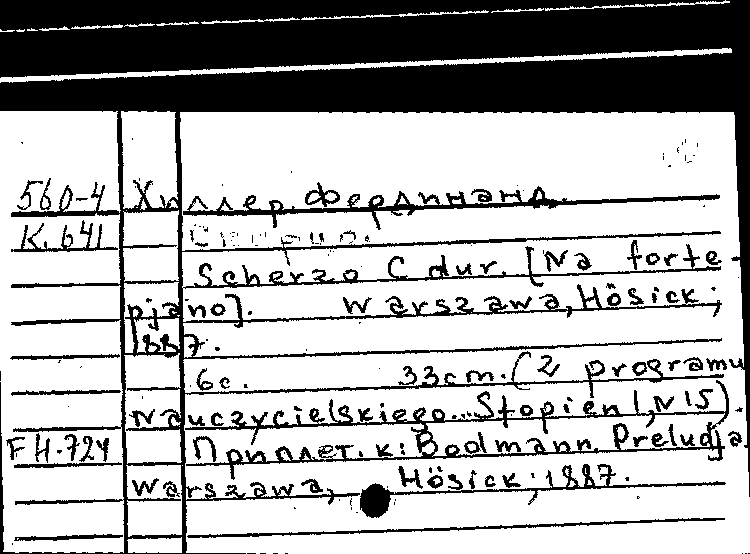 560-4 Хиллер. Фердинанд.
К. 641 Скерцо.
Scherzo C dur. [Na forte-
pjano]. Warszawa, Hösick;
1887.
6с. 33cm. (Z programu
Nauczycielskiego... Stopień I, N 15).
FH-724 Приплет. к: Bodmann. Preludja.
Warszawa, Hösick; 1887.